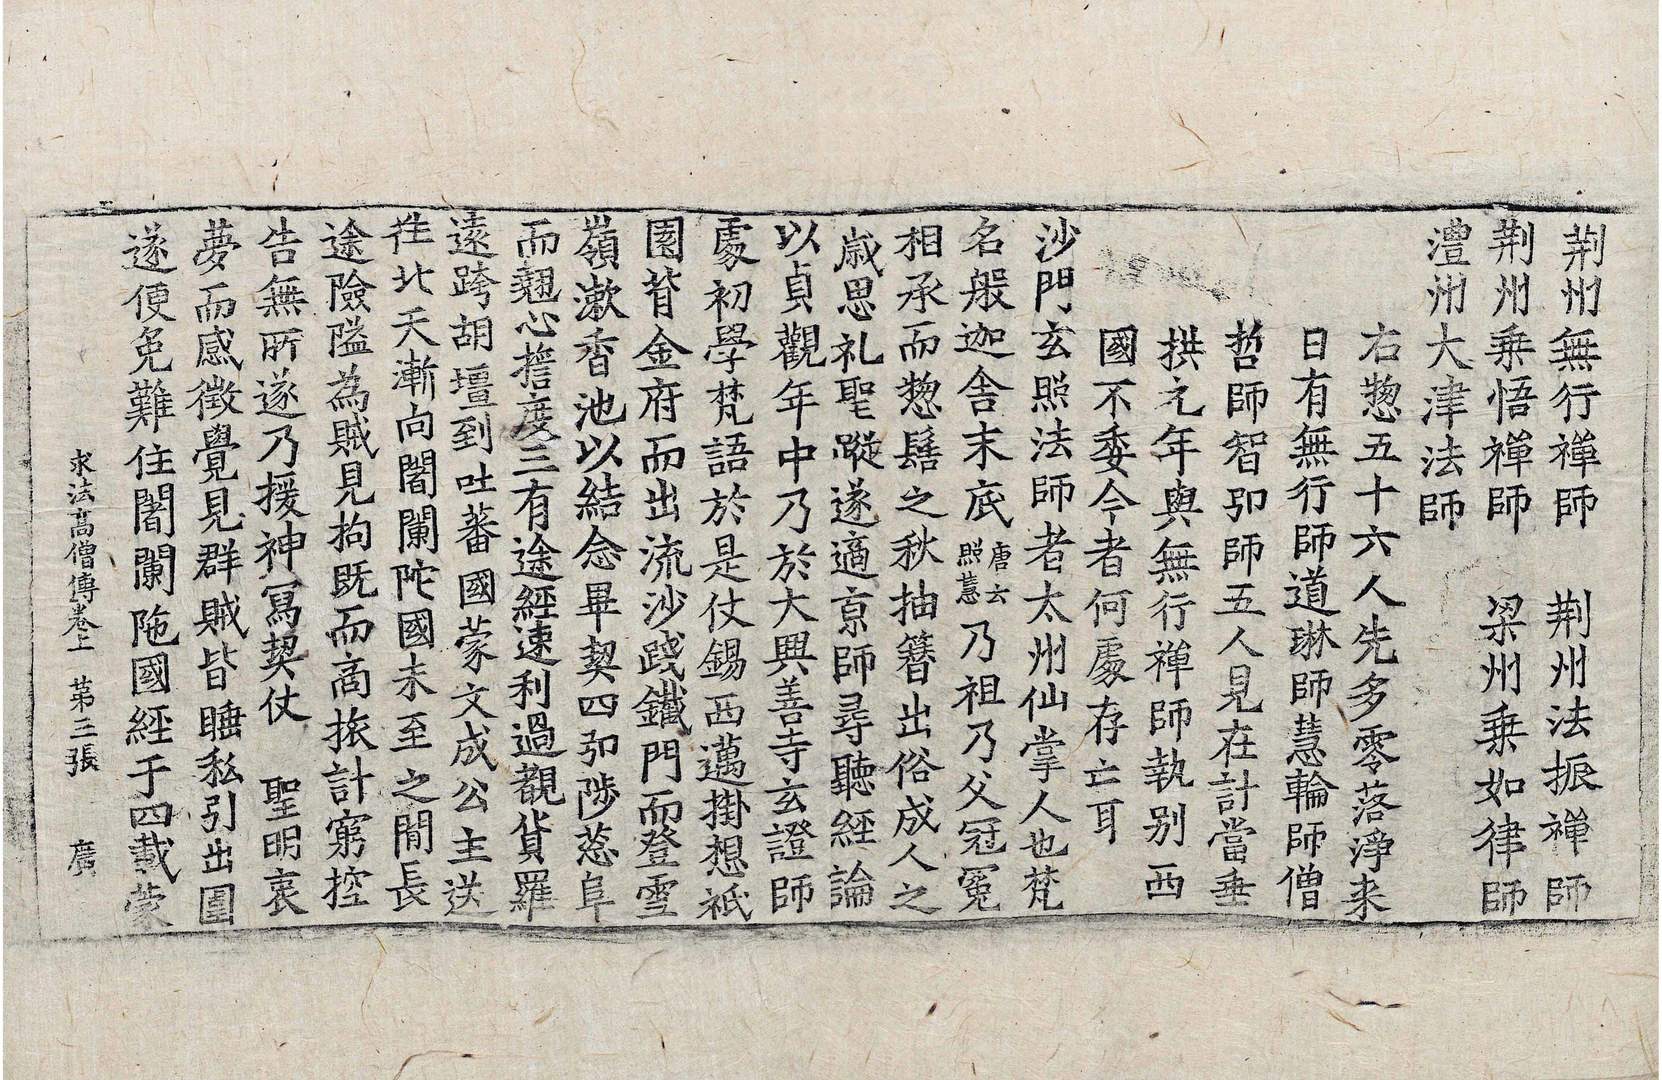 荆州無行禅師　荆州法振禅師
荆州乗悟禅師　梁州乗如律師
澧州大津法師
右惣五十六人先多零落淨来
日有無行師道琳師慧輪師僧
哲師智弘師五人見在計當垂
拱元年與無行禅師執别西
國不委今者何處存亡耳
沙門玄照法師者太州仙掌人也梵
名般迦舎末底唐云照慧乃祖乃父冠冕
相承而惣髫之秋抽簪出俗成人之
歳思礼聖蹤遂適京師尋聽経論
以貞觀年中乃於大興善寺玄證師
處初學梵語於是仗錫西邁掛想祇
園背金府而出流沙踐鐵門而登雪
嶺漱香池以結念畢契四弘陟葱阜
而翹心擔度三有途経速利過覩貨羅
遠跨胡壇到吐蕃國蒙文成公主送
徃北天漸向闍闌陀國未至之閒長
途險隘為賊見拘既而商旅計窮控
告無所遂乃援神冩契仗　聖明衷
夢而感徴覺見群賊皆睡私引出圍
遂便免難住闍闌陁國経于四載蒙
求法髙僧傳卷上　苐三張　廣